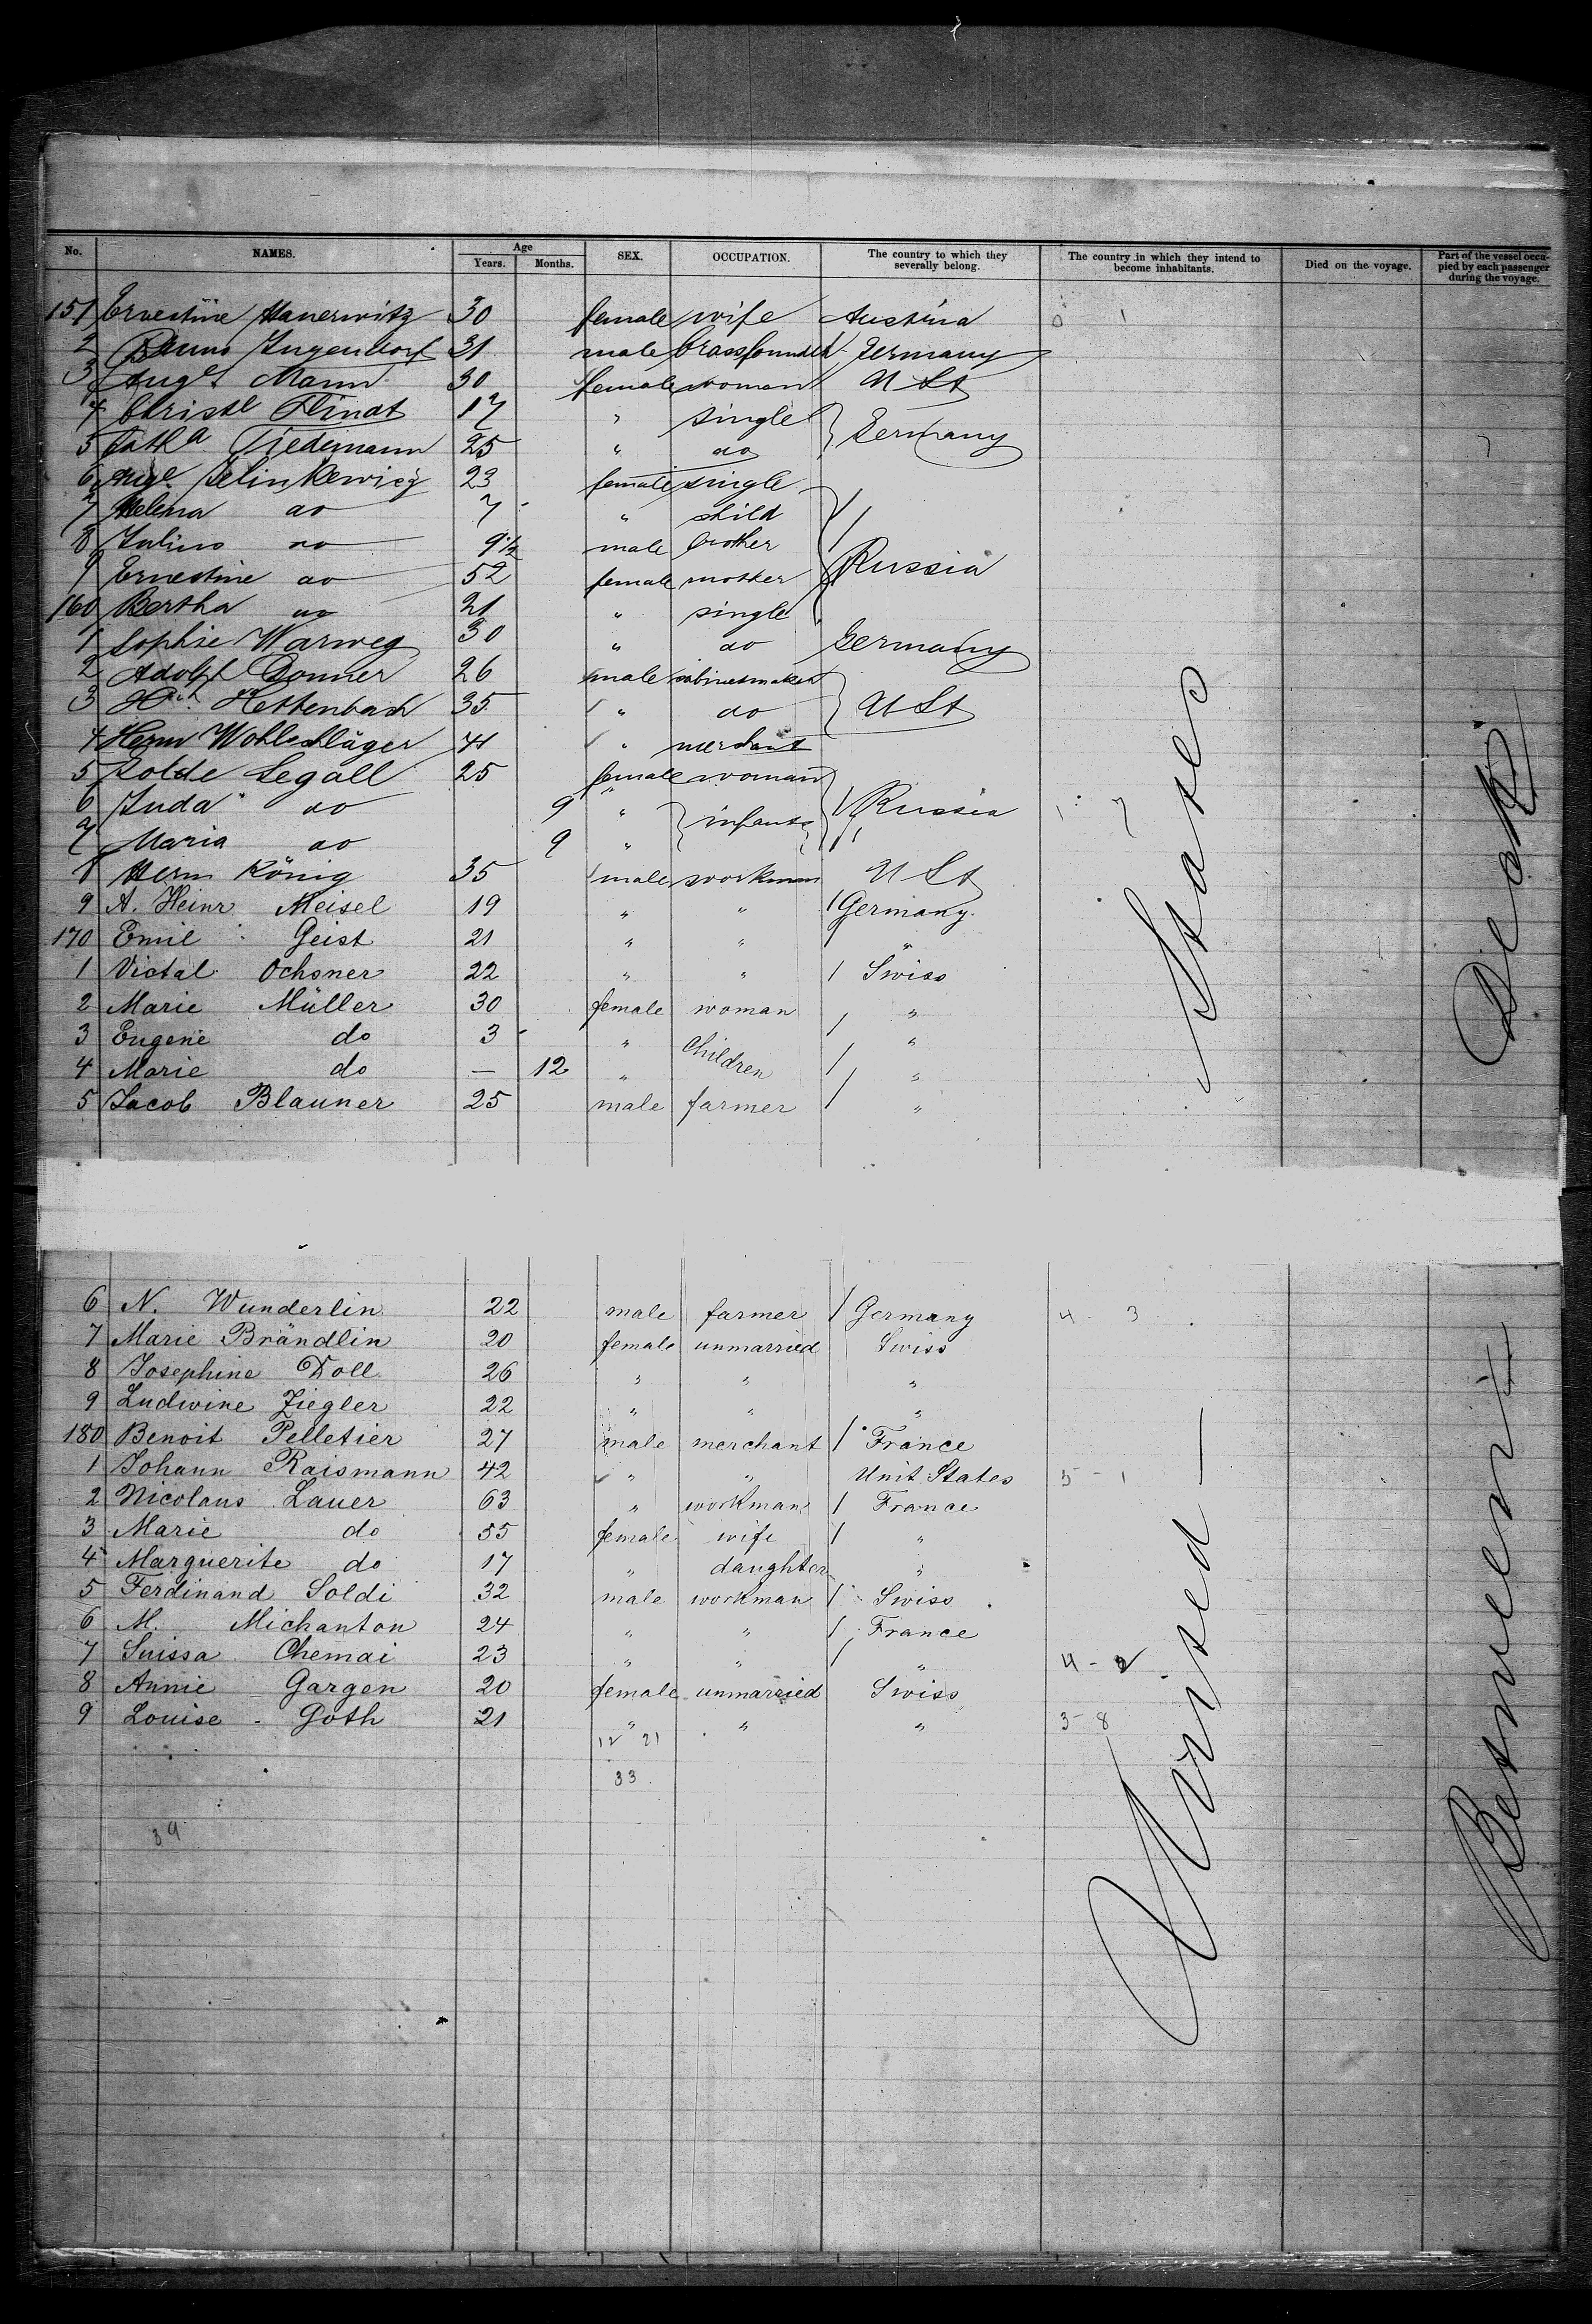 No. NAMES. Age Years. Months. SEX. OCCUPATION. The country to which they severally belong. The country in which they intend to become inhabitants. Died on the voyage. Part of the vessel occupied by each passenger during the voyage.
151 Ernestine Hanerwitz 30 female wife Austria 0 1
2 Bruno Jugendorf 31 male brassfounder Germany
3 Aug. Mann 30 female woman U St
4 Christl Flindt 17 " single
5 Cath.a Tiedemann 25 " do Germany
6 Aug. Selinkewicz 23 female single
7 Helena do 7 " child
8 Julius do 9½ male brother
9 Ernestine do 52 female mother Russia
160 Bertha do 21 " single
1 Sophie Warweg 30 " do Germany
2 Adolf Donner 26 male cabinetmaker
3 Hettenbach 35 " do U St
4 Herm Wohlschläger 41 " merchant
5 Zolde Segall 25 female woman
6 Juda do 9 " infants Russia
7 Maria do 9 "
8 Herm König 35 male workman U St
9 A. Heinr Meisel 19 " " Germany
170 Emil Geist 21 " " "
1 Victal Ochsner 22 " " Swiss
2 Marie Müller 30 female woman "
3 Eugenie do 3 " Children "
4 Marie do — 12 " "
5 Jacob Blauner 25 male farmer "
6 N. Wunderlin 22 male farmer Germany 4 - 3
7 Marie Brändlin 20 female unmarried Swiss
8 Josephine Doll 26 " " "
9 Ludwine Ziegler 22 " " "
180 Benoit Pelletier 27 male merchant France
1 Johann Raismann 42 " " Unit States 5 - 1
2 Nicolaus Lauer 63 " workman France
3 Marie do 55 female wife "
4 Marguerite do 17 " daughter "
5 Ferdinand Soldi 32 male workman Swiss
6 M. Michanton 24 " " France
7 Suissa Chemai 23 " " " 4 - 2
8 Annie Gargen 20 female unmarried Swiss
9 Louise Goth 21 " " " 3 - 8
12 21
33
39
Unised States
Betweens Deck